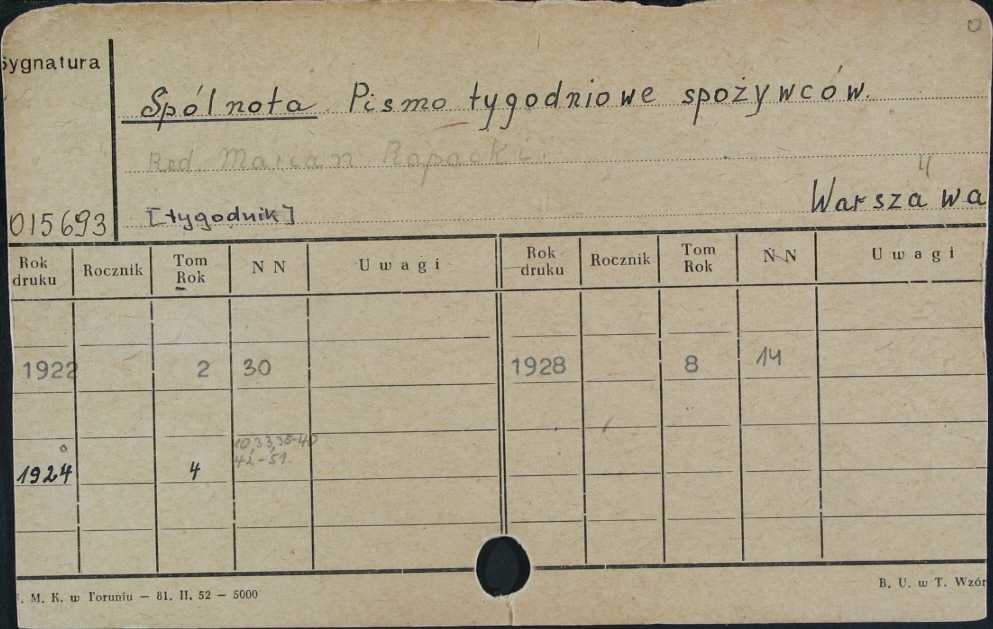 Sygnatura
Spólnota. Pismo tygodniowe spożywców.
Red. Marian Rapacki.
4
015693 [tygodnik] Warszawa
Rok druku Rocznik Tom Rok N N Uwagi Rok druku Rocznik Tom Rok N N Uwagi
1922 2 30 1928 8 14
10,33,38-40
1924 4 42-51.
M. K. w Toruniu — 81. II. 52 — 5000 B. U. w T. Wzór